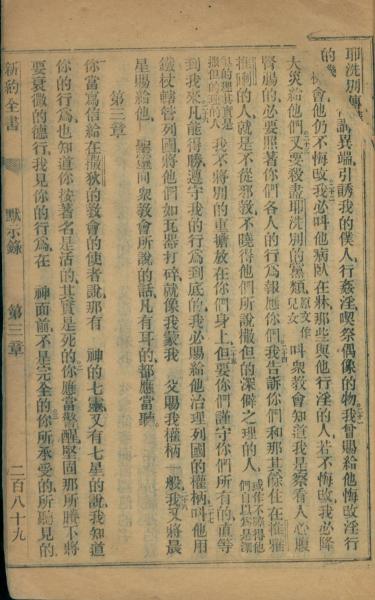 耶洗別
講異端引誘我的僕人、行姦淫喫祭偶像的物、我曾賜給他悔改淫行
的機會、他仍不悔改、我必叫他病臥在牀、那些與他行淫的人、若不悔改、我必降
大災給他們、又要殺盡耶洗別的黨類、原文作兒女叫衆教會知道我是察看人心腹
腎腸的、必要照著你們各人的行為報應你們、我告訴你們和那其餘住在推雅
推喇的人、就是不從邪教、不曉得他們所說撒但的深僻之理的人、
我不將別的重擔放在你們身上、但要你們謹守你們所有的、直等
到我來、凡能得勝、遵守我的行為到底的、我必賜給他治理列國的權柄、叫他用
鐵杖轄管列國、將他們如瓦器打碎、就像我蒙我 父賜我權柄一般、我又將晨
星賜給他、 聖靈向衆教會所說的話、凡有耳的都應當聽。
第三章
你當寫信給在撒狄的教會的使者說、那有 神的七靈、又有七星的說、我知道
你的行為、也知道你按著名是活的、其實是死的、你應當警醒、堅固那所賸不將
要衰微的德行、我見你的行為、在 神面前不是完全的、你所承受的所聽見的
新約全書 默示錄 第三章 二百八十九